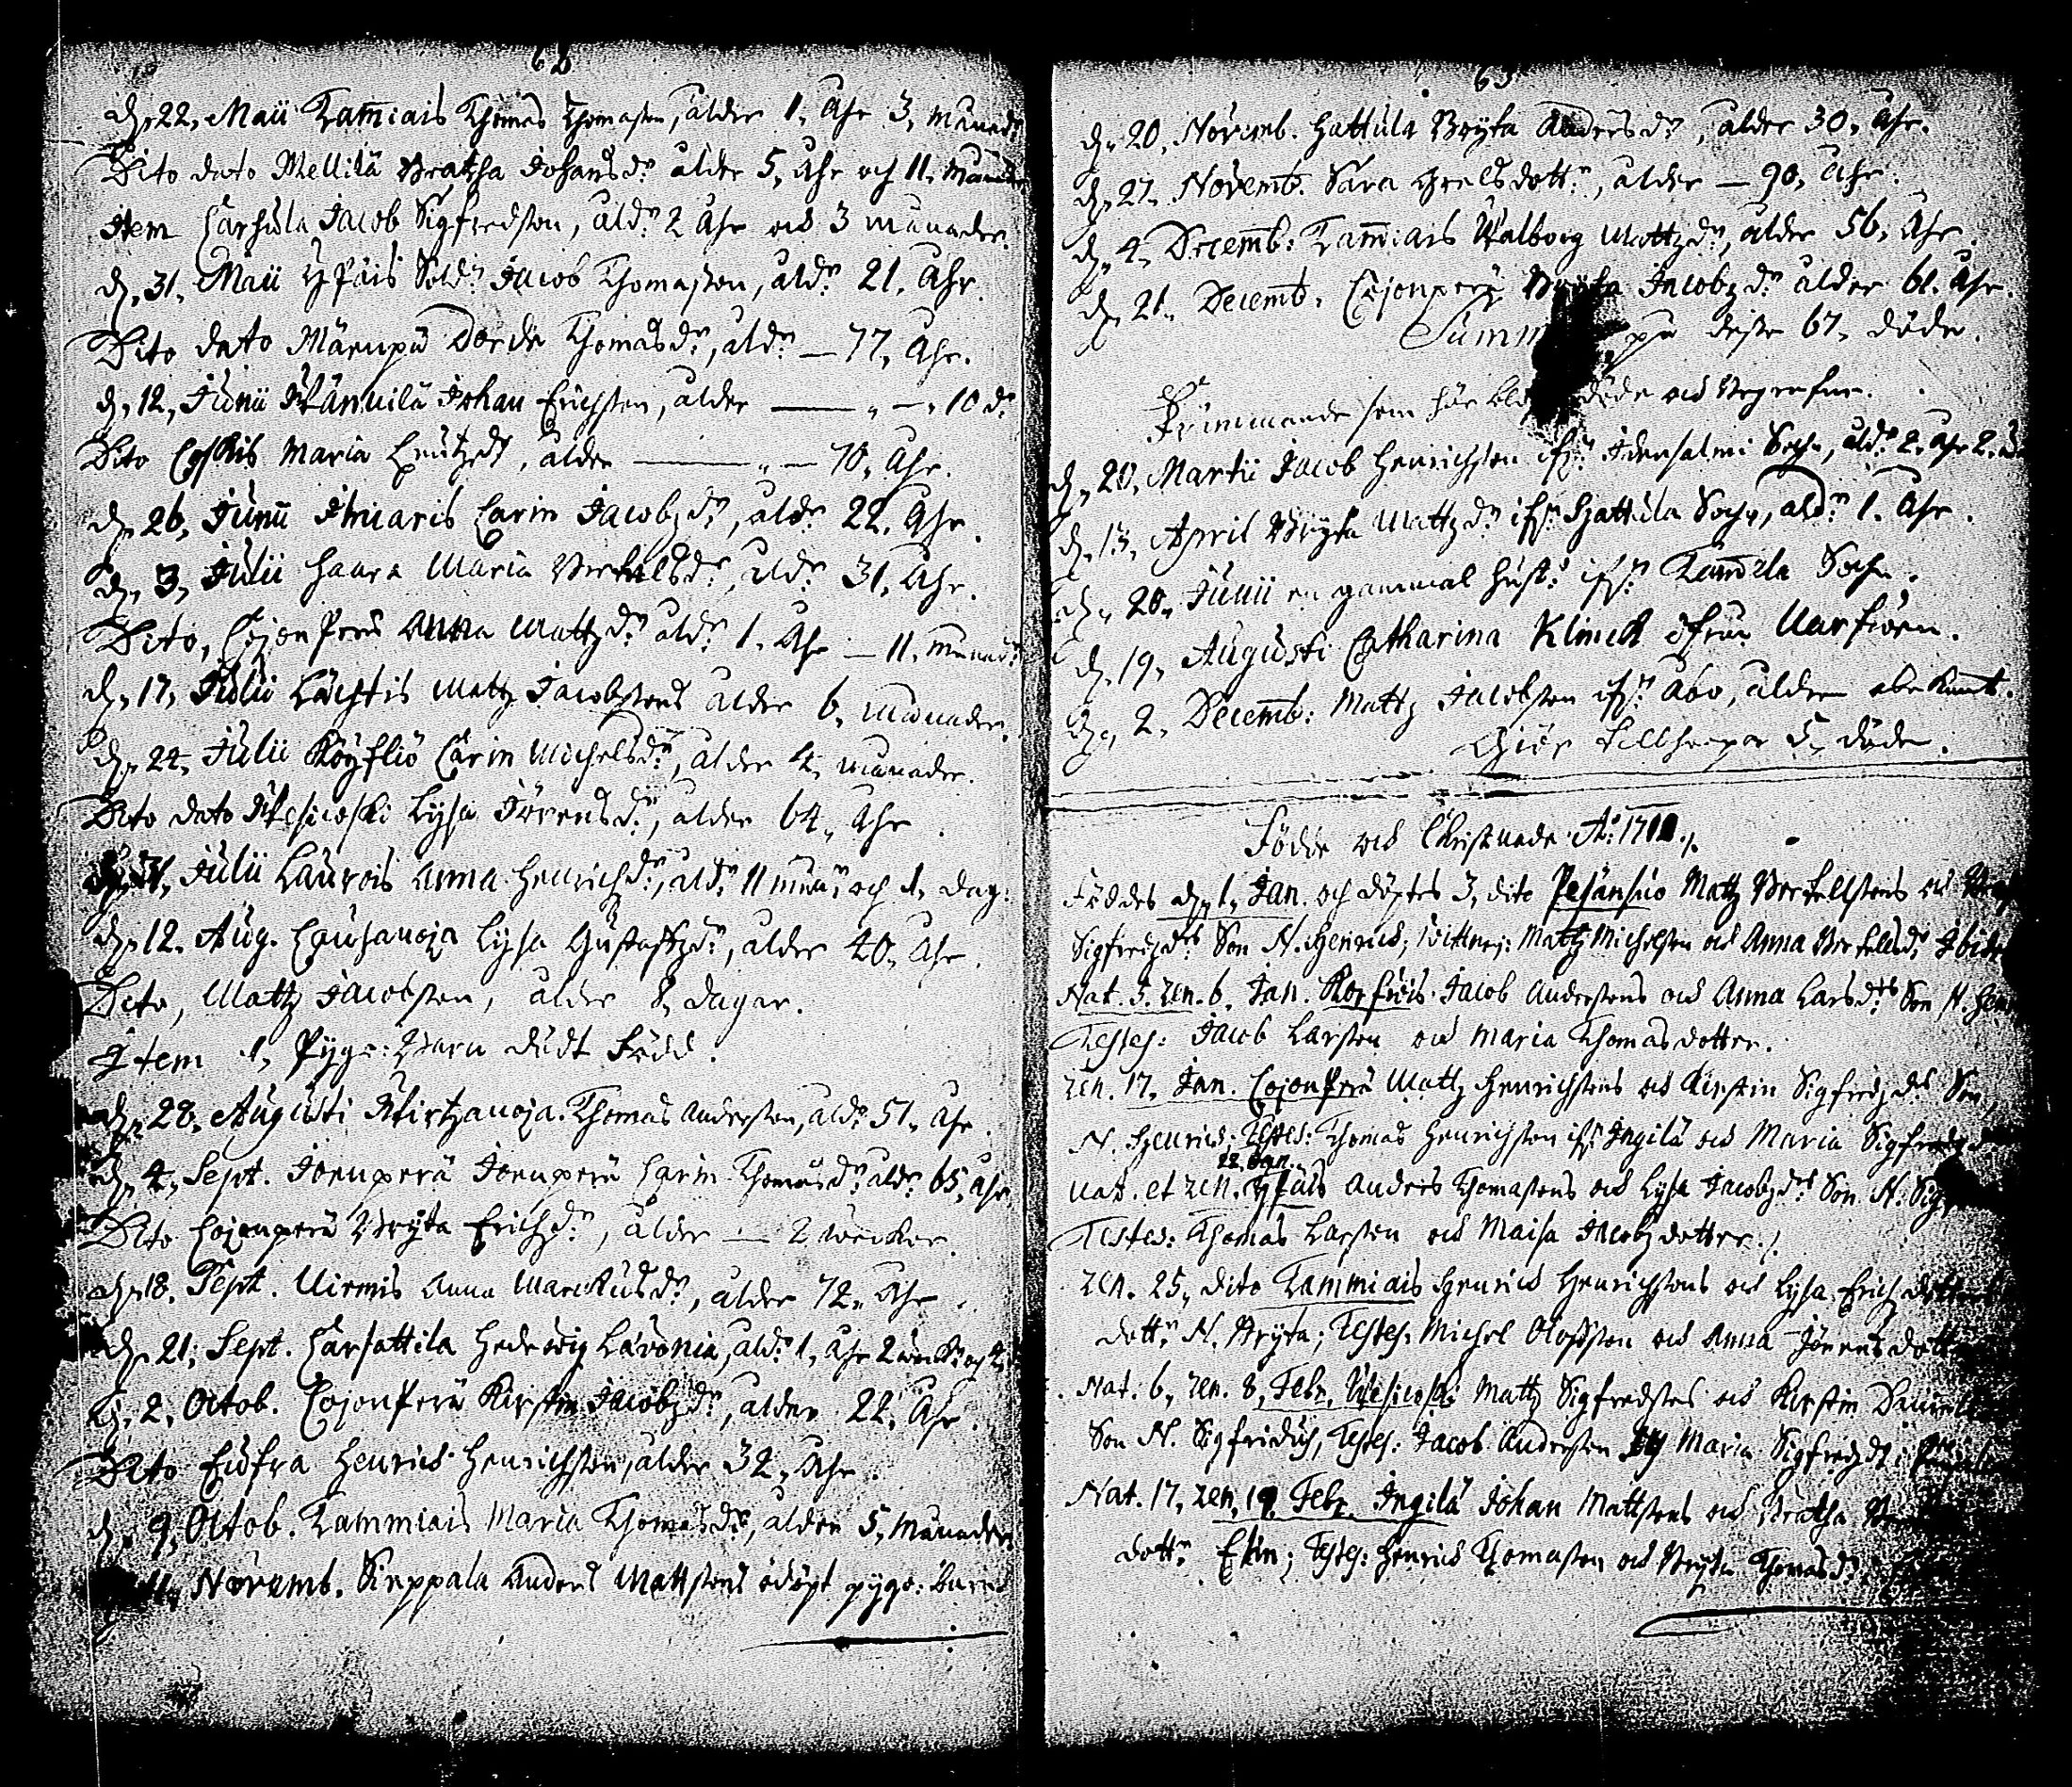 62
d. 22, Maii Tam̄iais Thomas Thomasson, ålder 1, Åhr 3, månad
Dito dato Mellilä Beatha Johansdr ålder 5, Åhr och 11, månader
Item Carhula Jacob Sigfredsson, åldr 2 Åhr och 3 månader.
d. 31, Maii Ypäis Soldr Jacob Thomasson, åldr 21, Åhr.
Dito dato Mäenpä Dorde Thomasdr, åldr — 77, Åhr.
d. 12, Junii Wänuilä Johan Erichsson, ålder — „ — „ 10 d.
Dito Maria Knutzdr, ålder — „ — 70, Åhr.
d. 26, Junii Carin Jacobzdr, åldr 22, Åhr.
d. 3, Julii Haara Maria Bertelsdr, åldr 31, Åhr.
Dito, Cojonperä Anna Mattzdr åldr 1, Åhr — 11, månad
d. 17, Julii Mattz Jacobssons ålder 6, månader.
d. 24, Julii Köyliö Carin Michelsdr, ålder 4, månader.
Dito dato Wesicoski Lysa Jörensdr, ålder 64, Åhr.
31, Julii Laurois Anna Henrichdr, åldr 11 mån: och 1, dag.
d. 12. Aug. Cauhanoja Lysa Gustaffzdr, ålder 40, Åhr.
Dito, Mattz Jacobsson, ålder 8, dagar.
Item 1, Pyge-Barn dödt Född.
d. 28, Augusti Wirtzanoja Thomas Andersson, åldr 51, Åhr.
d. 4, Sept. Joenperä Joenperä Carin Thomasdr åldr 65, Åhr
Dito Cojonperä Bryta Erichzdr, ålder — 2 weckor.
d. 18. Sept. Uirmis Anna Marckusdr, ålder 72, Åhr.
d. 21, Sept. Carsattila Hedewig Lavonia, åldr 1, Åhr 2 och 4
d. 2, Octob. Cojonperä Kirstin Jacobzdr, ålder 22, Åhr.
Dito Eufra Henrich Henrichsson, ålder 32, Åhr.
d. 9, Octob. Tammiais Maria Thomasdr, ålder 5, månader.
11, Novemb. Sieppala Anders Mattssons odöpt pyge-barn
63
d. 20, Novemb. Hattula Bryta Andersdr, ålder 30, Åhr.
d. 27, Novemb. Sara Grelsdottr, ålder — 90, Åhr.
d. 4, Decemb: Tam̄iais Walborg Mattzdr, ålder 56, Åhr.
d. 21, Decemb, Cojonperä Bryta Jacobzdr ålder 61. Åhr.
Summ på desse 67, döde.
Främmande som här döde och begrafne.
d. 20, Martii Jacob Henrichsson ifr: Idensalmi Sochn, åldr 2, Åhr 2.
d. 13, April Bryta Mattzdr ifr: Hattula Sochn, åldr 1. Åhr.
d. 20, Junii en gammal hust: ifr: Tam̄ela Sochn.
d. 19, Augusti Catharina Klinck ifrån
d. 2, Decemb: Mattz Jacobsson ifr: Åbo, ålder obekant.
Giör tillhopa 5, döde.
Födde och Christnade Ao: 1712.
Föddes d. 1, Jan. och döptes 3, dito Pesänsuo Mattz Bertellssons och
Sigfredzdrs Son N. Henrich; Wittnen: Mattz Michelsson och Anna Bertellsdr Ibidem
Nat. 3. ren. 6, Jan. Korfwois Jacob Anderssons och Anna Larsdrs Son N.
Testes: Jacob Larsson och Maria Thomasdotter.
ren. 17, Jan. Cojonperä Mattz Henrichssons och Kirstin Sigfredzdrs Son,
N. Henrich; Testes: Thomas Henrichsson ifr: Ingilä och Maria
22. Jan.
nat. et ren. Ypäis Anders Thomassons och Lysa Jacobzdrs Son N:
Testes: Thomas Larsson och Maisa Jacobzdotter.
ren. 25, dito Tammiais Henrich Henrichssons och Lysa Erichz
dottr N. Bryta; Testes: Michel Olofsson och Anna Jörensdott
Nat. 6, ren. 8, Febr. Wesicoski Mattz Sigfredssons och Kirstin
Son N. Sigfridus, Testes: Jacob Andersson Maria Sigfredzdr
Nat. 17, ren. 19, Febr. Ingilä Johan Mattssons och Beatha
dottr Elin; Testes: Henrich Thomasson och Bryta Thomasdr